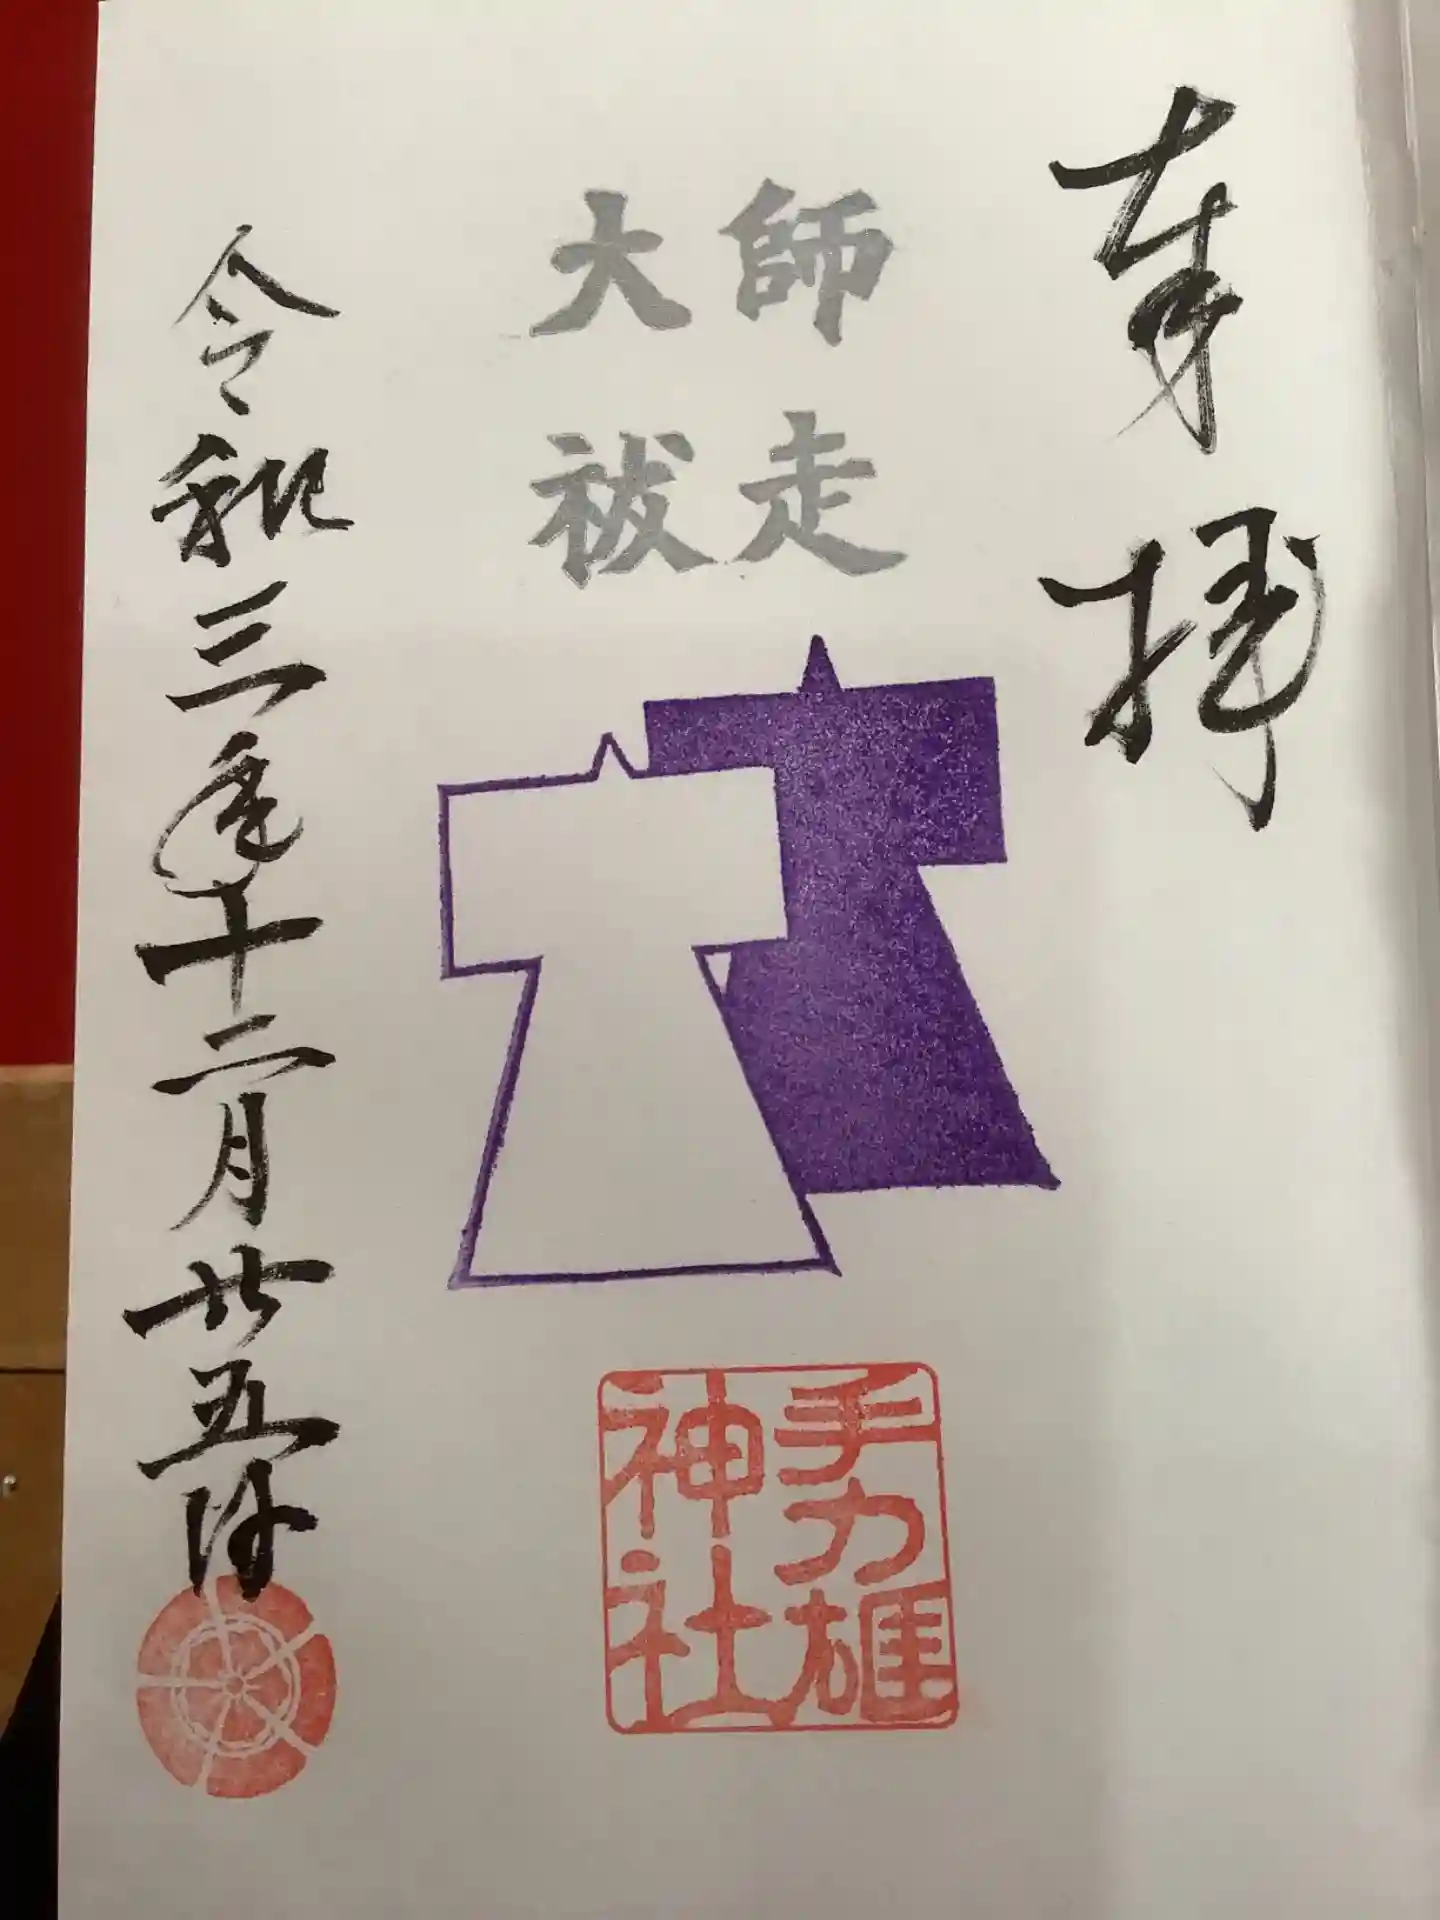 奉拝
師走
大祓
手力雄
神社
令和三年十二月廿五日